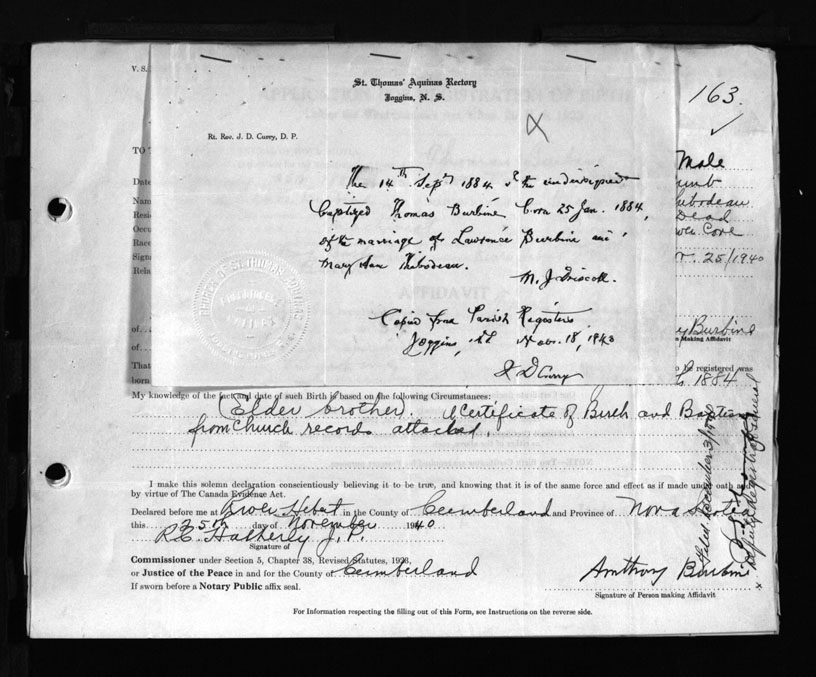 163.
V. S.
St. Thomas' Aquinas Rectory
Joggins, N. S.
Rt. Rev. J. D. Curry, D. P.
TO
Male
Date
The 14th Sept 1884 I the undersigned
Nam
Baptized Thomas Burbine born 25 Jan. 1884,
Resi
Dead
Occu
of the marriage of Lawrence Burbine and
Cove
Race
Mary Ann Thibodeau.
25/1940
Signa
Rela
M. J. Driscoll.
Copied from Parish Registers
Burbine
of
Joggins, Nov. 18, 1943
n Making Affidavit
of
That
J D Curry
to be registered was
born
1884
My knowledge of the fact and date of such Birth is based on the following Circumstances:
(Elder brother. Certificate of Birth and Baptism
from Church records attached.
I make this solemn declaration conscientiously believing it to be true, and knowing that it is of the same force and effect as if made under oath and
by virtue of The Canada Evidence Act.
Declared before me at River Hebert in the County of Cumberland and Province of Nova Scotia
this 25th day of November 1940
R. C. Hatherly J. P.
Signature of
Commissioner under Section 5, Chapter 38, Revised Statutes, 1923,
or Justice of the Peace in and for the County of Cumberland
If sworn before a Notary Public affix seal.
Anthony Burbine
Signature of Person making Affidavit
Deputy Registrar General
For Information respecting the filling out of this Form, see Instructions on the reverse side.